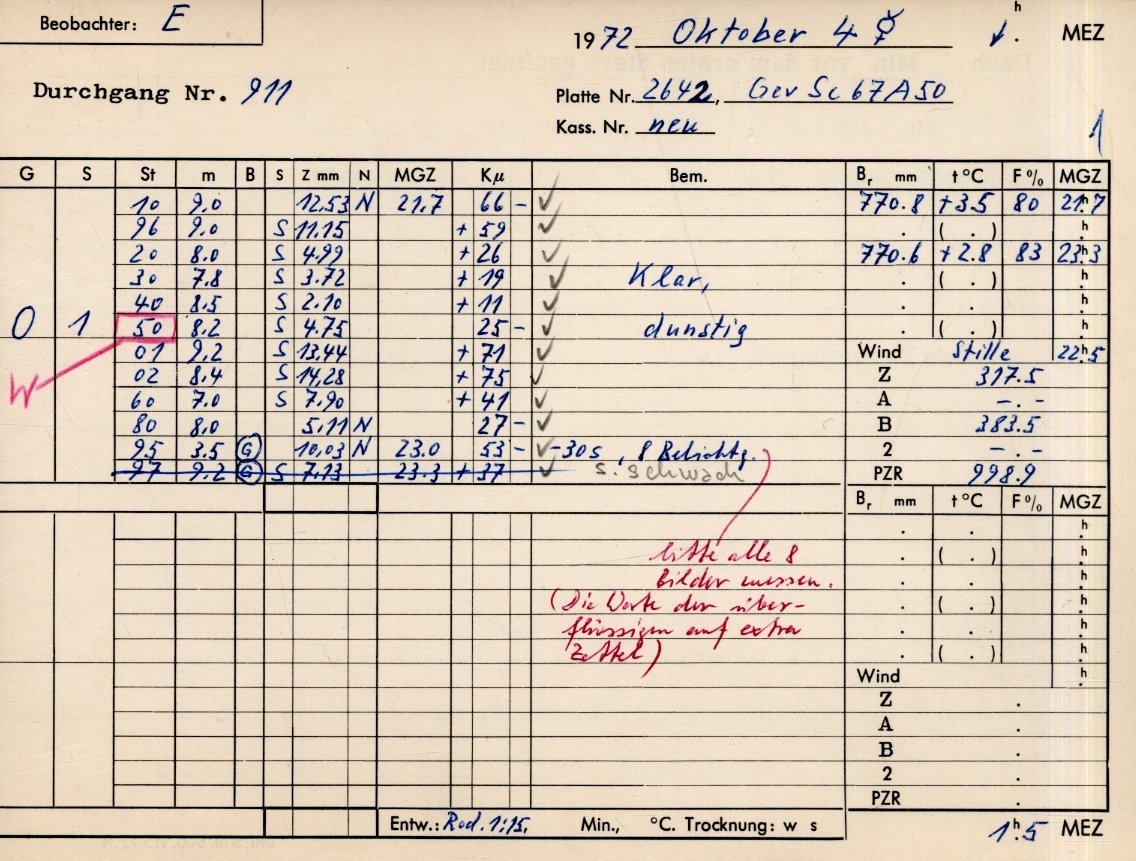 Beobachter: E
1972 Oktober 4 ☿ h . MEZ
Durchgang Nr. 911
Platte Nr. 2642, Gev Sc 67A50
Kass. Nr. neu
1
G S St m B S Z mm N MGZ Kµ Bem. Br mm t °C F % MGZ
10 9.0 12.53 N 21.7 66 - ✓ 770.8 +3.5 80 21h.7
96 9.0 S 11.15 + 59 ✓ . ( . ) h.
20 8.0 S 4.99 + 26 ✓ 770.6 +2.8 83 23h.3
30 7.8 S 3.72 + 19 ✓ Klar, . ( . ) h.
40 8.5 S 2.10 + 11 ✓ . . h.
0 1 50 8.2 S 4.75 25 - ✓ dunstig . ( . ) h.
01 9.2 S 13,44 + 71 ✓ Wind Stille 22h.5
W 02 8.4 S 14,28 + 75 ✓ Z 317.5
60 7.0 S 7.90 + 41 ✓ A -.-
80 8.0 5.11 N 27 - ✓ B 383.5
95 3.5 G 10,03 N 23.0 53 - ✓ -30s, 8 Belichtg. 2 -.-
97 9.2 G S 7.13 23.3 + 37 ✓ s. schwach PZR 998.9
Br mm t °C F % MGZ
. . h.
bitte alle 8 . ( . ) h.
Bilder messen. . . h.
(Die Werte der über- . ( . ) h.
flüssigen auf extra . . h.
Zettel) . ( . ) h.
Wind h.
Z .
A .
B .
2 .
PZR .
Entw.: Rod. 1:15, Min., °C. Trocknung: w s 1h.5 MEZ